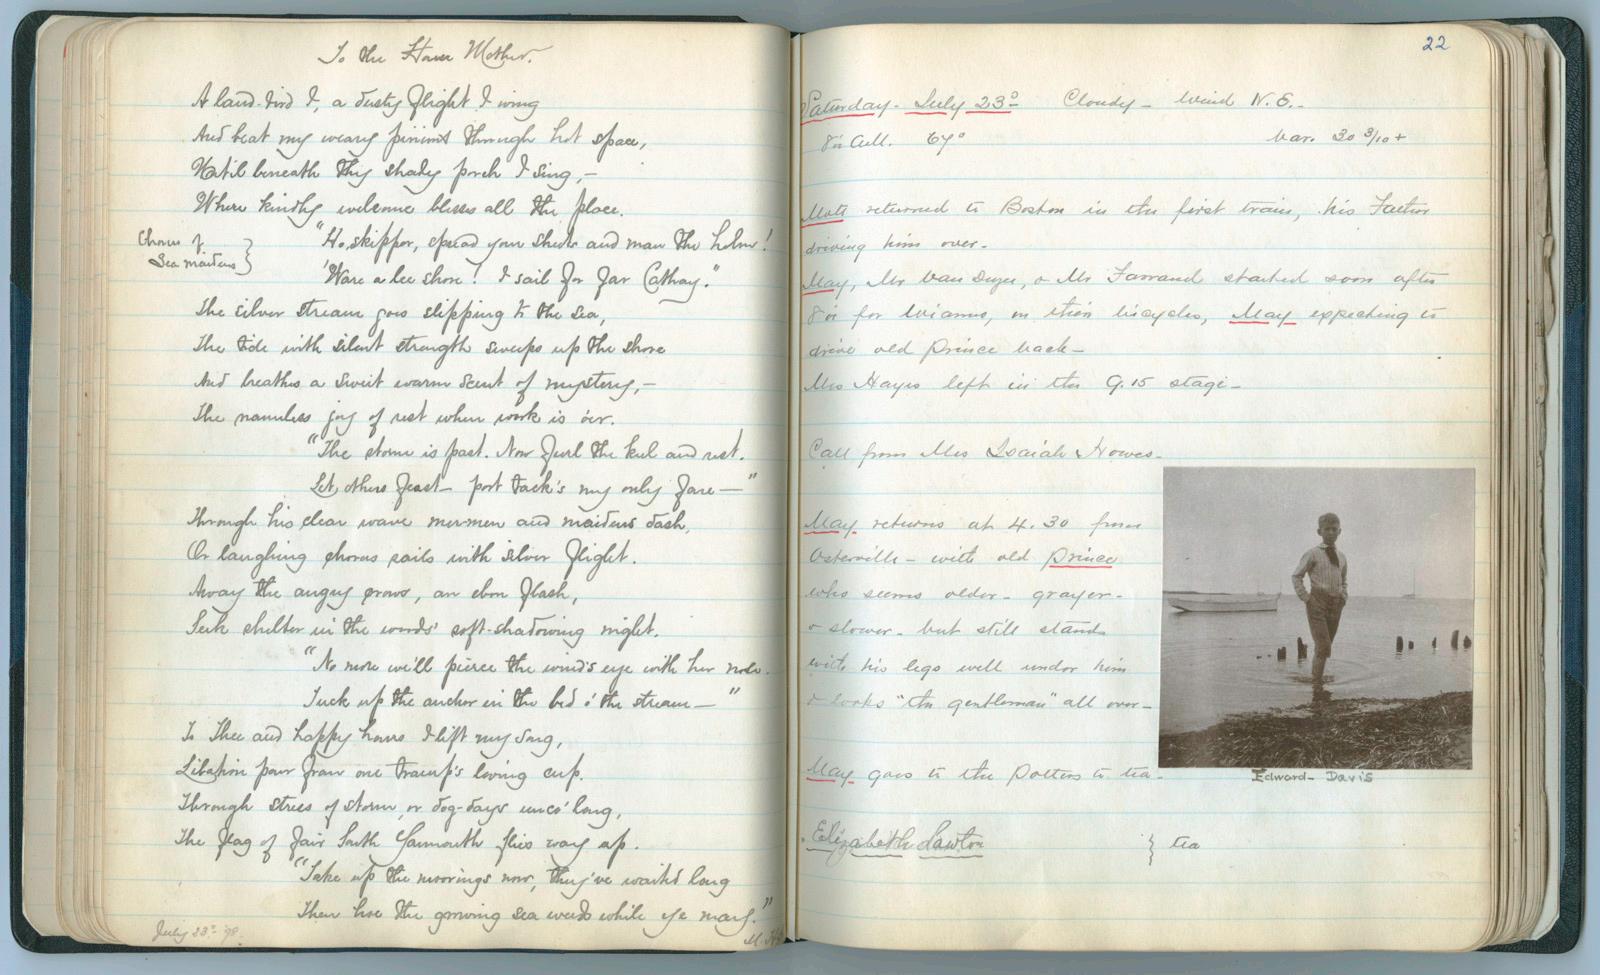 To the House Mother.
A land-bird I, a dusty flight I wing
And beat my weary pinions through hot space,
Until beneath thy shady porch I sing,—
Where kindly welcome blesses all the place.
Chorus of
Sea maidens }
"Ho, skipper, spread your sheets and man the helm!
'Ware a lee shore! I sail for far Cathay."
The silver stream goes slipping to the sea,
The tide with silent strength sweeps up the shore
And breathes a sweet warm scent of mystery,—
The nameless joy of rest when work is o'er.
"The storm is past. Now furl the keel and rest.
Let others feast— port tack's my only fare—"
Through his clear wave mer-men and maidens dash,
Or laughing chorus sails with silver flight.
Away the angry crows, an ebon flash,
Seek shelter in the woods' soft-shadowing night.
"No more we'll pierce the wind's eye with her nose.
Tuck up the anchor in the bed o' the stream—"
To Thee and happy hours I lift my song,
Libation pour from one tramp's loving cup.
Through stress of storm, or dog-days unco' long,
The flag of fair South Yarmouth flies way up.
"Take up the moorings now, they've waited long
Then hoe the growing sea weeds while ye may."
July 23º '98.
22
Saturday- July 23º- Cloudy- Wind N.E.-
67º Bar. 30 3/10+
returned to Boston in the first train, his Father
driving him over-
May, Mr Van Duzer, & Mr Farrand started soon after
8 o' for Wianno, on their bicycles, May expecting to
drive old Prince back-
Mrs Hayes left in the 9.15 stage-
Call from Mrs Isaiah Howes-
May returns at 4.30 from
Osterville- with old Prince
who seems older- grayer-
& slower- but still stands
with his legs well under him
& looks "the gentleman" all over-
May goes to the Potters to tea-
Edward- Davis
Elizabeth Lawton } tea